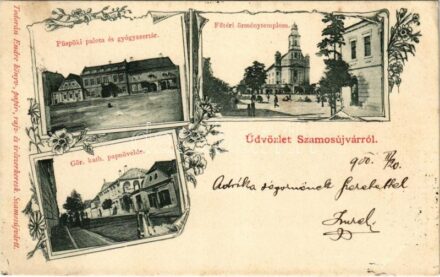 Püspöki palota és gyógyszertár.
Főtéri örménytemplom.
Gör. kath. papnövelde.
Üdvözlet Szamosújvárról.
900.
Adrika
szeretettel
Todorán Endre könyv-, papír-, rajz- és írószerkeresk. Szamosujvártt.